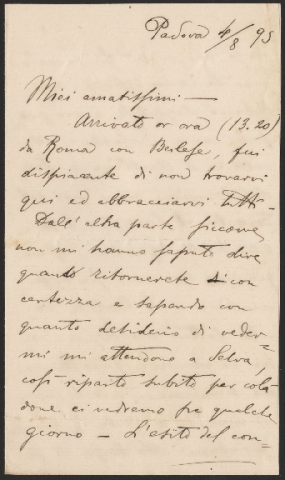 Padova 4/8 95
Miei amatissimi —
Arrivato or ora (13.20)
da Roma con Berlese, fui
dispiacente di non trovarvi
qui ed abbracciarvi tutti —
Dall' altra parte siccome
non mi hanno saputo dire
quando ritornerete con
certezza e sapendo con
quanto desiderio di veder=
mi mi attendono a Selva,
così riparto subito per colà
dove ci vedremo fra qualche
giorno — L'esito del con=